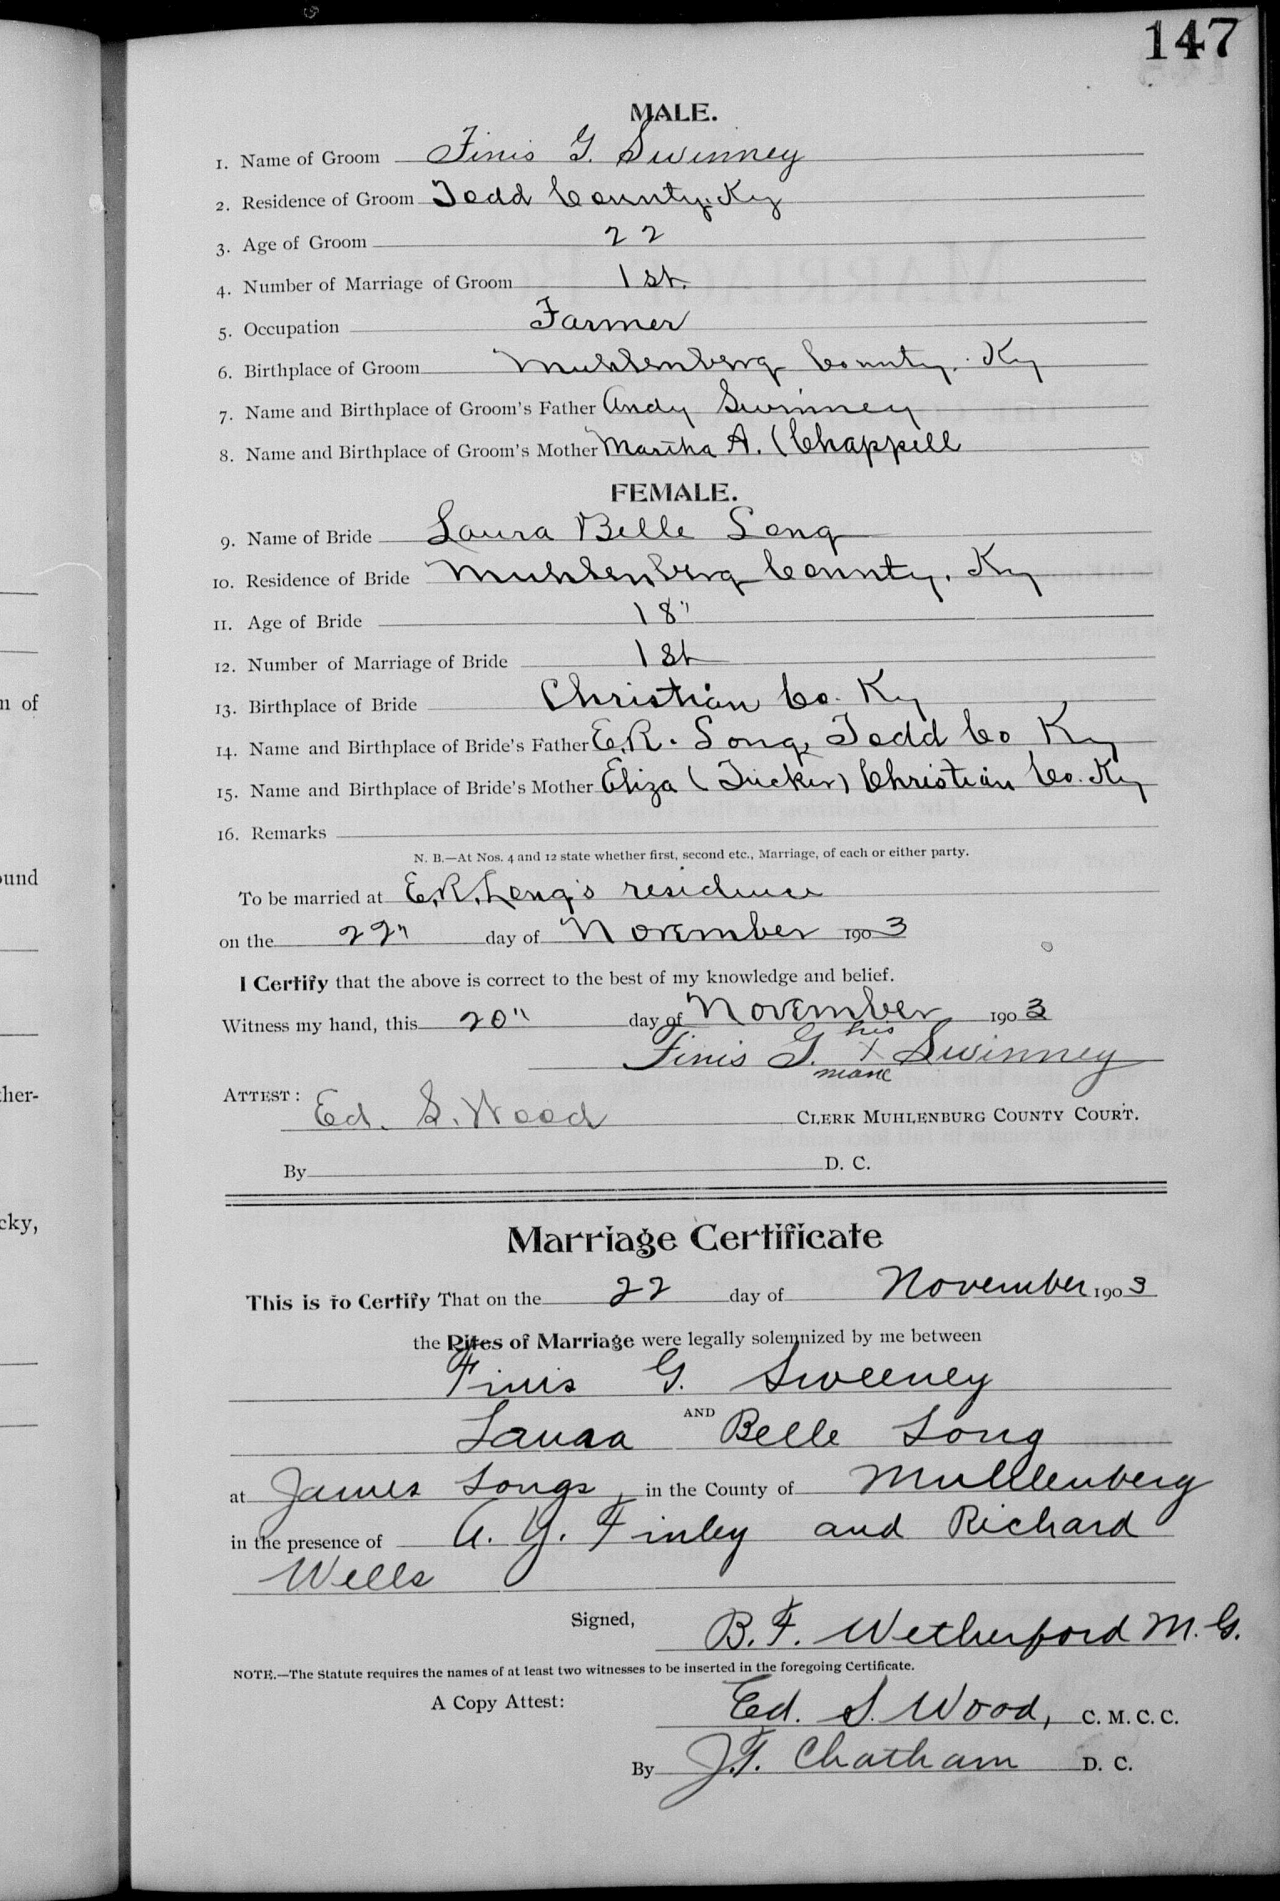 147
MALE.
1. Name of Groom Finis G. Swinney
2. Residence of Groom Todd County, Ky
3. Age of Groom 22
4. Number of Marriage of Groom 1st.
5. Occupation Farmer
6. Birthplace of Groom Muhlenberg County. Ky
7. Name and Birthplace of Groom's Father Andy Swinney
8. Name and Birthplace of Groom's Mother Martha A. (Chappell
FEMALE.
9. Name of Bride Laura Belle Long
10. Residence of Bride Muhlenberg County. Ky
11. Age of Bride 18"
12. Number of Marriage of Bride 1st
13. Birthplace of Bride Christian Co. Ky
14. Name and Birthplace of Bride's Father E.R. Long, Todd Co Ky
15. Name and Birthplace of Bride's Mother Eliza (Tucker) Christian Co. Ky
16. Remarks
N. B.—At Nos. 4 and 12 state whether first, second etc., Marriage, of each or either party.
To be married at E.R. Long's residence
on the 22" day of November 1903
I Certify that the above is correct to the best of my knowledge and belief.
Witness my hand, this 20" day of November 1903
Finis G. his X mark Swinney
ATTEST: Ed. S. Wood CLERK MUHLENBURG COUNTY COURT.
By D. C.
Marriage Certificate
This is to Certify That on the 22 day of November 1903
the Rites of Marriage were legally solemnized by me between
Finis G. Sweeney
AND
Laura Belle Long
at James Longs, in the County of Mulllenberg
in the presence of A. Y. Finley and Richard
Wells
Signed, B. F. Wetherford M. G.
NOTE.—The Statute requires the names of at least two witnesses to be inserted in the foregoing Certificate.
A Copy Attest: Ed. S. Wood, C. M. C. C.
By J. F. Chatham D. C.
n of
ound
ther-
cky,